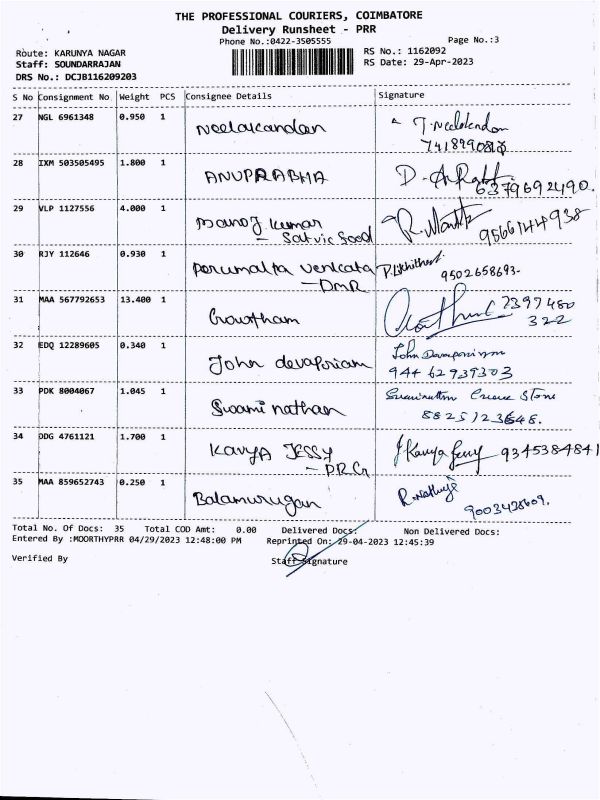 THE PROFESSIONAL COURIERS, COIMBATORE
Delivery Runsheet - PRR
Phone No.:0422-3505555 Page No.:3
Route: KARUNYA NAGAR RS No.: 1162092
Staff: SOUNDARRAJAN RS Date: 29-Apr-2023
DRS No.: DCJB116209203
S No Consignment No Weight PCS Consignee Details Signature
27 NGL 6961348 0.950 1 Neelakandan T. Neelakandan
28 IXM 503505495 1.800 1 ANUPRABHA 6379692490.
29 VLP 1127556 4.000 1 Manoj kumar 9566144938
- Satvic food
30 RJY 112646 0.930 1 Perumalla Venkata 9502658693.
- DMR
31 MAA 567792653 13.400 1 Gowtham 7397480
322
32 EDQ 12289605 0.340 1 John devapriam John
9446293930 3
33 PDK 8004067 1.045 1 Swaminathan Stone
34 DDG 4761121 1.700 1 KAVYA JESSY J Kavya Jessy 9345384841
- P.R.G
35 MAA 859652743 0.250 1 Balamurugan
Total No. Of Docs: 35 Total COD Amt: 0.00 Delivered Docs: Non Delivered Docs:
Entered By :MOORTHYPRR 04/29/2023 12:48:00 PM Reprinted On: 29-04-2023 12:45:39
Verified By Staff Signature